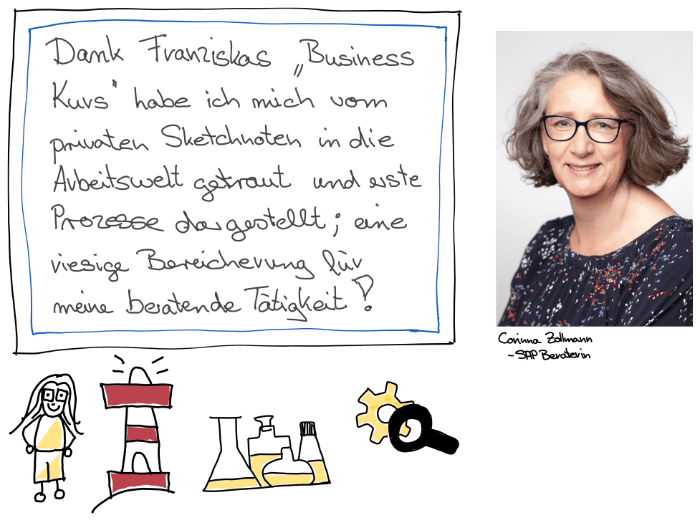 Dank Franziskas „Business
Kurs" habe ich mich vom
privaten Sketchnoten in die
Arbeitswelt getraut und erste
Prozesse dargestellt; eine
riesige Bereicherung für
meine beratende Tätigkeit!
Corinna Zollmann
- SAP Beraterin